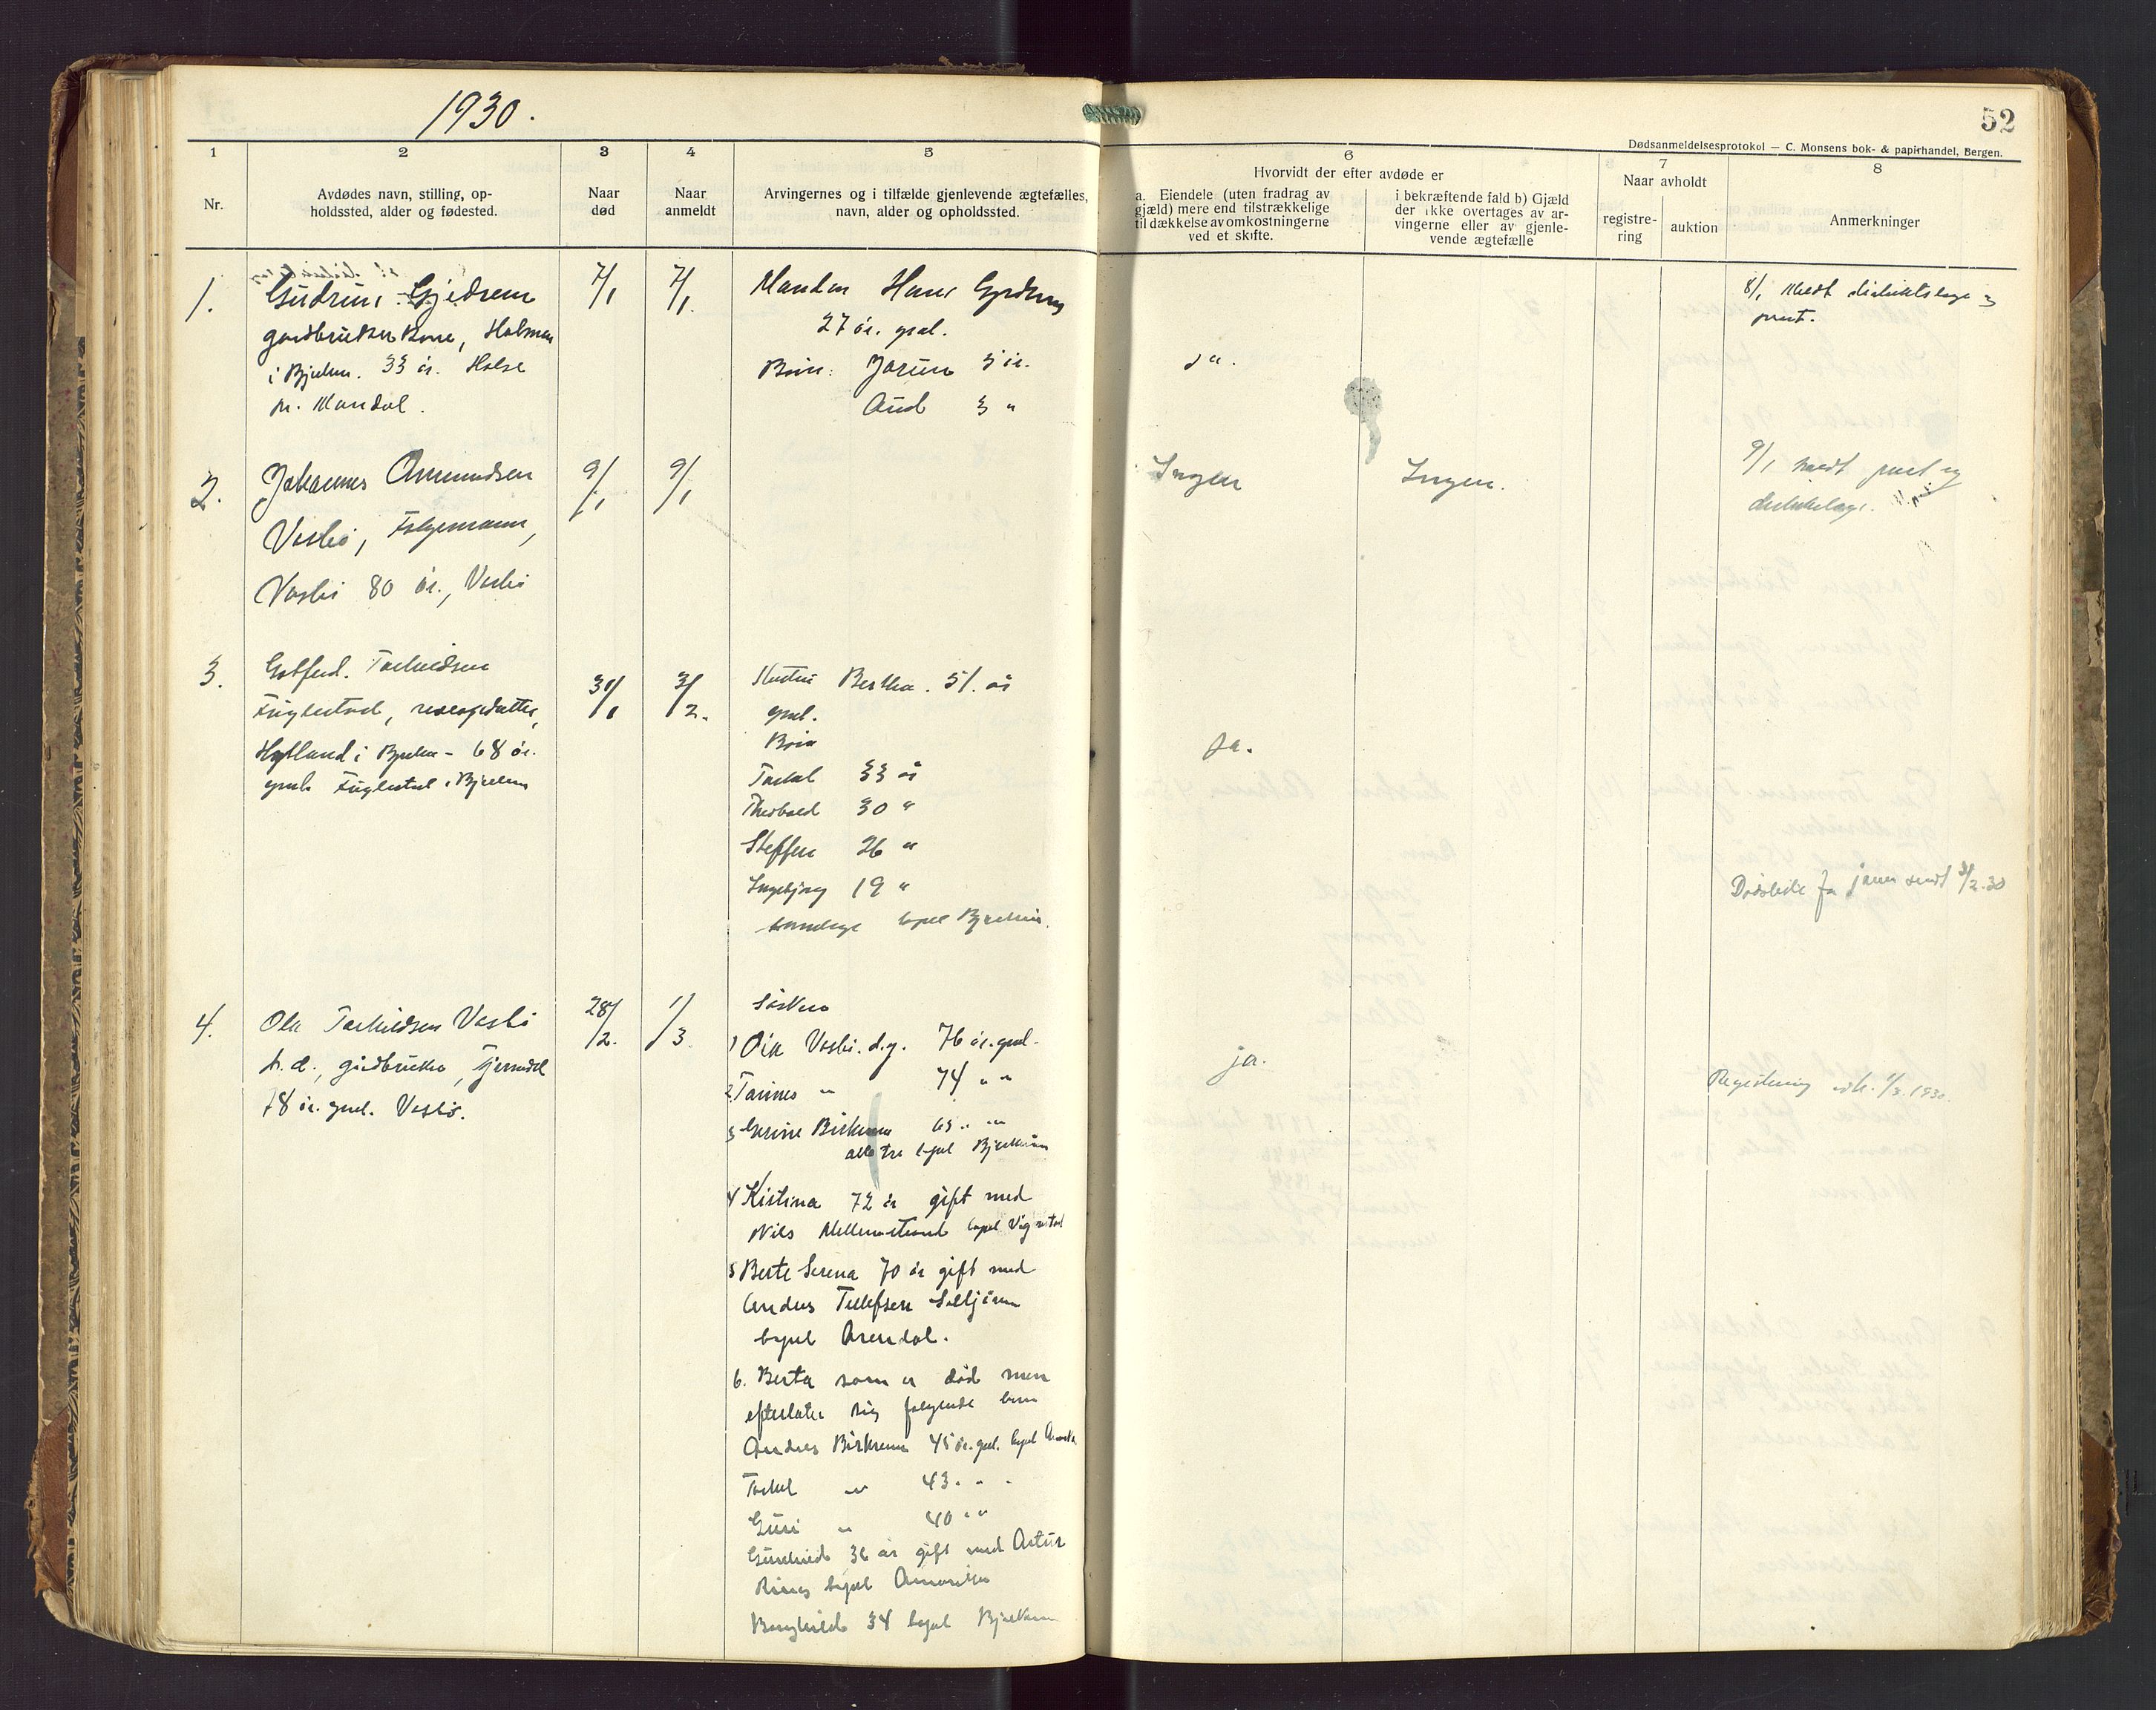 1930.
52
Dødsanmeldelsesprotokol — C. Monsens bok- & papirhandel, Bergen.
1
2
3
4
5
6
7
8
Nr.
Avdødes navn, stilling, op-
holdssted, alder og fødested.
Naar
død
Naar
anmeldt
Arvingernes og i tilfælde gjenlevende ægtefælles,
navn, alder og opholdssted.
Hvorvidt der efter avdøde er
a. Eiendele (uten fradrag av
gjæld) mere end tilstrækkelige
til dækkelse av omkostningerne
ved et skifte.
i bekræftende fald b) Gjæld
der ikke overtages av ar-
vingerne eller av gjenle-
vende ægtefælle
Naar avholdt
registre-
ring
auktion
Anmerkninger
1.
Gudrun Gjedrem
gardbruker kone, Holmen
i Bjerkrm. 33 år. Holse
pr. Mandal.
7/1
7/1.
Manden Hans Gjedrem
27 år. gml.
Børn: Jorun 5 år.
Aud 3 "
ja.
8/1 Meldt distriktslæge og
prest.
2.
Johannes Amundsen
Vasbø, Folgemann,
Vasbø 80 år., Vasbø
9/1
9/1
Ingen
Ingen.
9/1 meldt prest og
3.
Gotfred. Torkildsen
Fuglestad,
Hytland i Bjerkr. - 68 år.
gml. Fuglestad i Bjerkrem
31/1
3/2.
Hustru Bertha. 51. år
gml.
Børn
Torkel 33 år
Theobald 30 "
Steffen 26 "
Ingebjørg 19 "
samtlige bopel Bjerkrem.
ja.
Dødsliste for januar sendt 3/2.30
4.
Ole Torkildsen Vasbø
p. d., gårdbruker, Gjermdal
78 år. gml. Vasbø.
28/2.
1/3
Søsken
1 Eia Vasbø. d.y. 76 år. gml.
2 Tønnes " 74 " "
3 Gurine Birkrem 63 " "
alle tre bopel Bjerkrem
4 Kistina 72 år gift med
Nils Mellemstrand bopel Vigrestad
5 Berte Serena 70 år gift med
Andres Tellefsen
bopel Arendal.
6. Berta som er død men
efterlater sig følgende barn
Andres Birkrem 45 år. gml. bopel Amerika
Torkel " 43 " "
Guri " 40 " "
Gunhild 36 år gift med Artur
bopel Amerika
Borghild 34 bopel Bjerkrem
ja.
Registrering avh. 1/3. 1930.